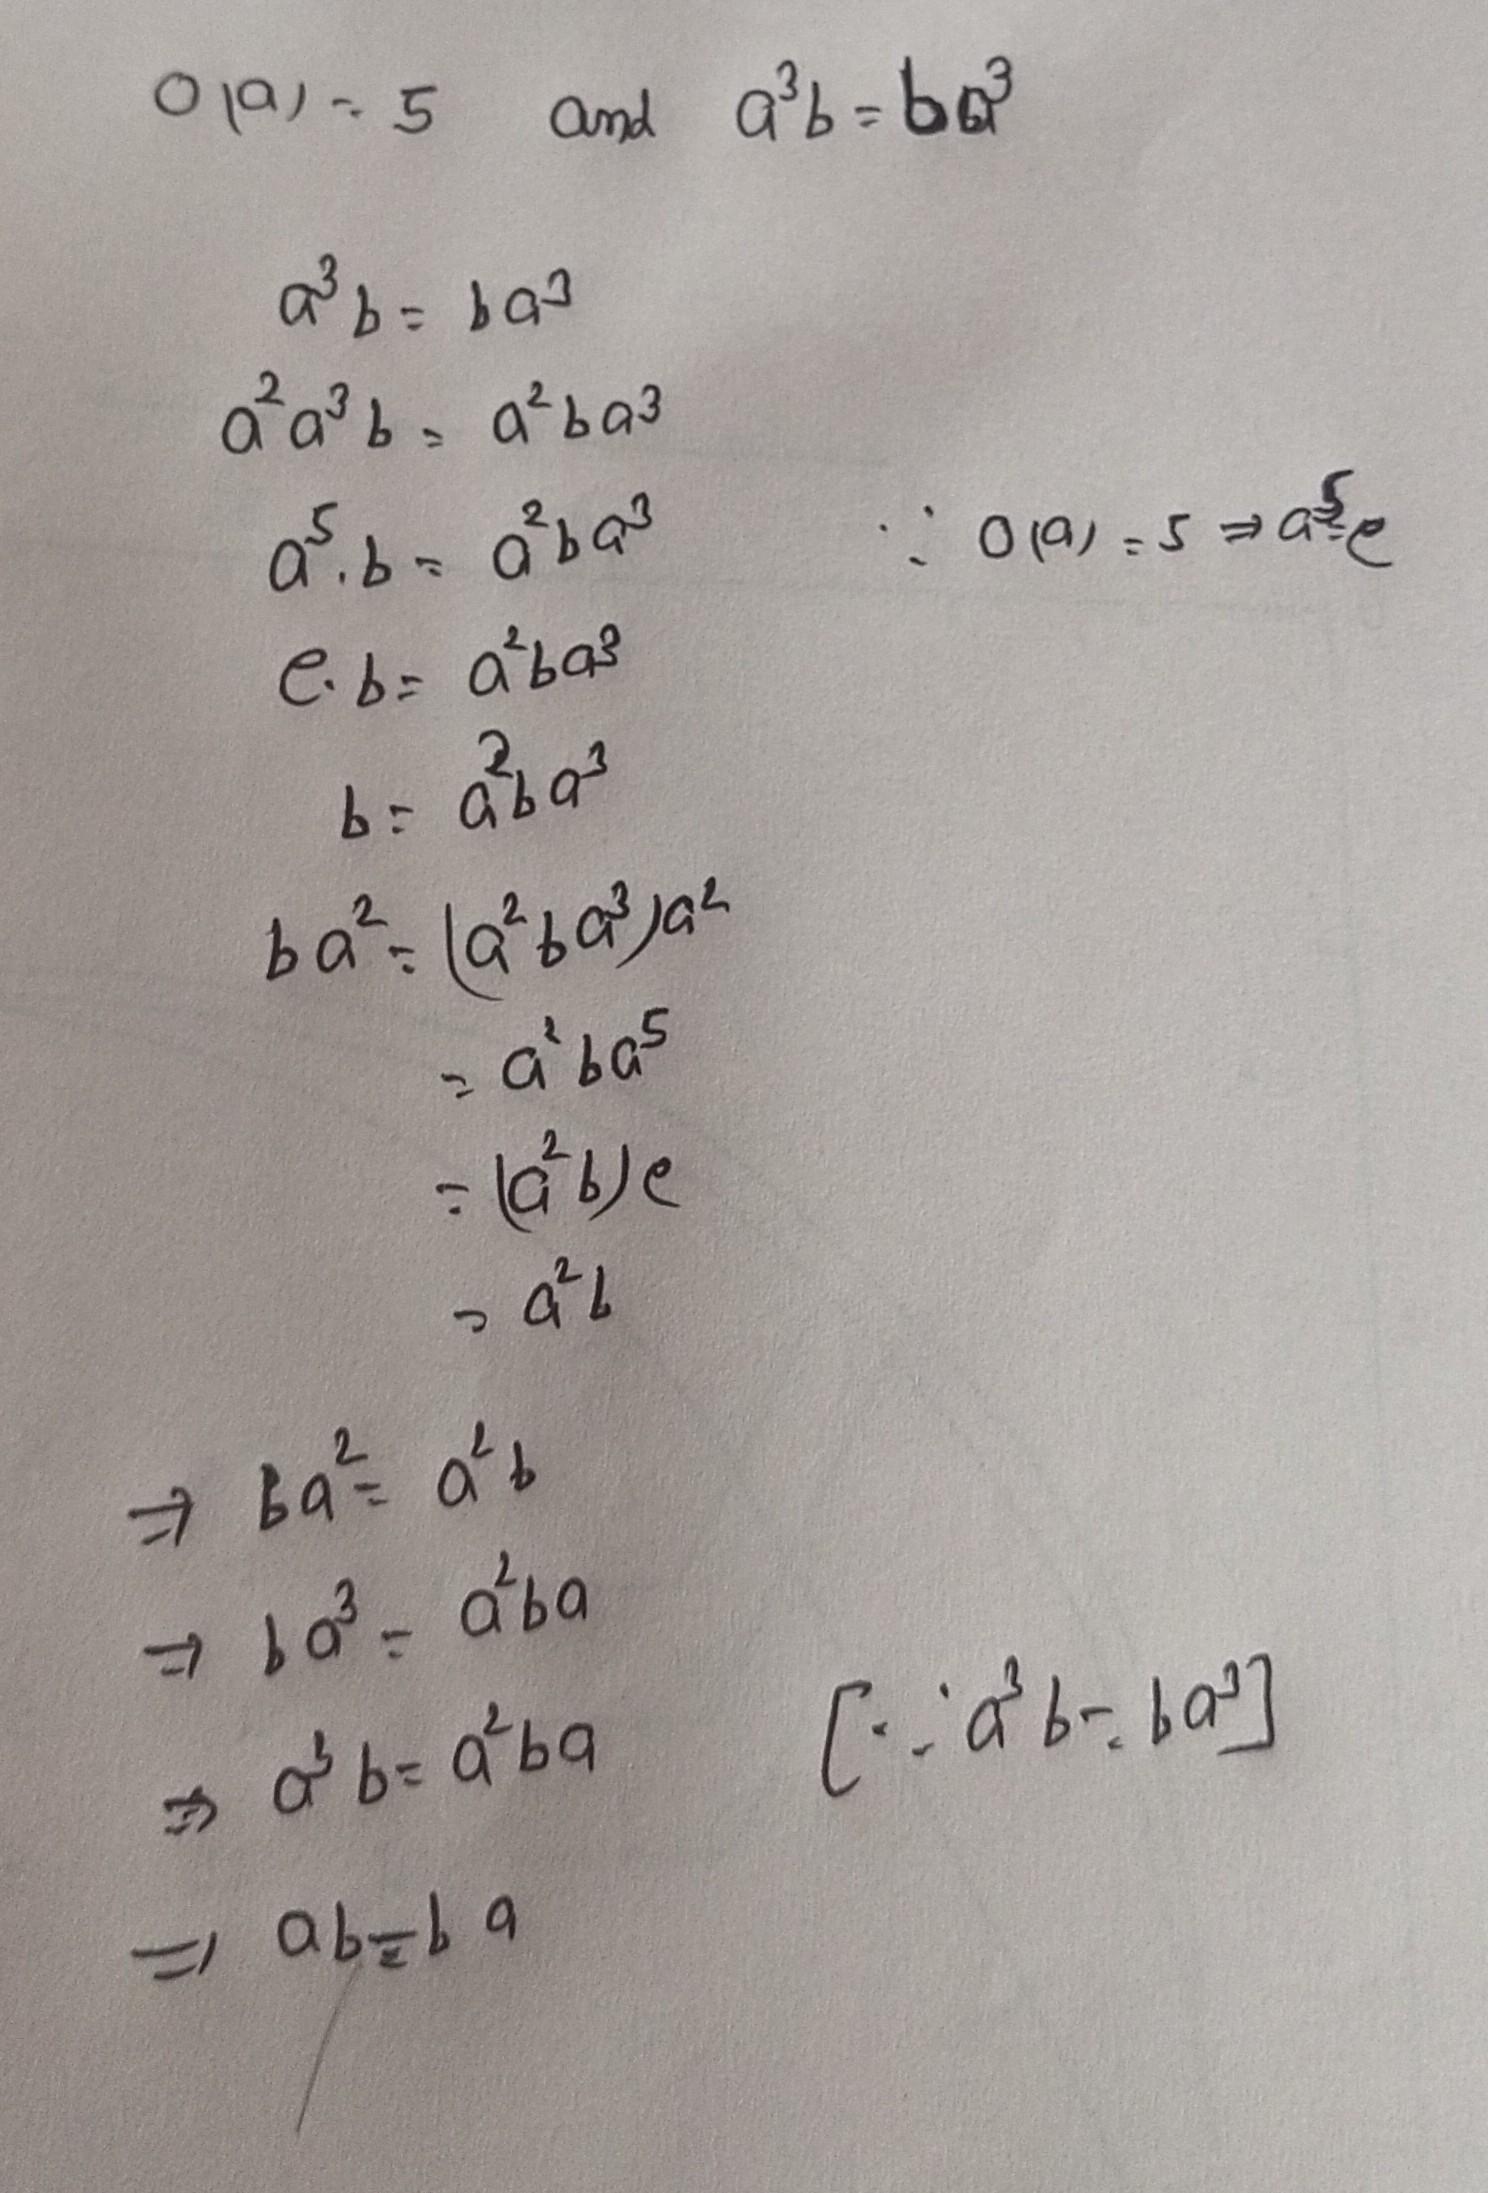 O(a) = 5 and a³b = ba³
a³b = ba³
a²a³b = a²ba³
a⁵.b = a²ba³ ∵ O(a) = 5 ⇒ a⁵=e
e.b = a²ba³
b = a²ba³
ba² = (a²ba³)a²
= a²ba⁵
= (a²b)e
= a²b
⇒ ba² = a²b
⇒ ba³ = a²ba
⇒ a³b = a²ba [∵ a³b = ba³]
⇒ ab = ba